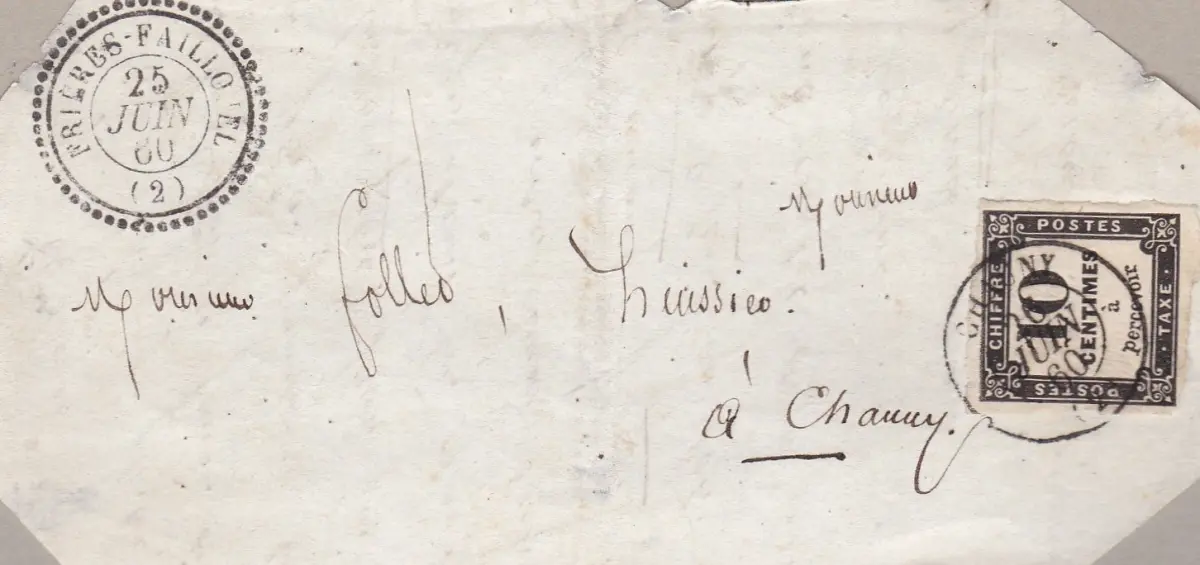 FRIÈRES-FAILLOUEL
25
JUIN
60
(2)
Monsieur
Monsieur follet, huissier.
à Chauny.
POSTES
CHIFFRE
10
CENTIMES
à
percevoir
TAXE
POSTES
CHAUNY
JUIN
60